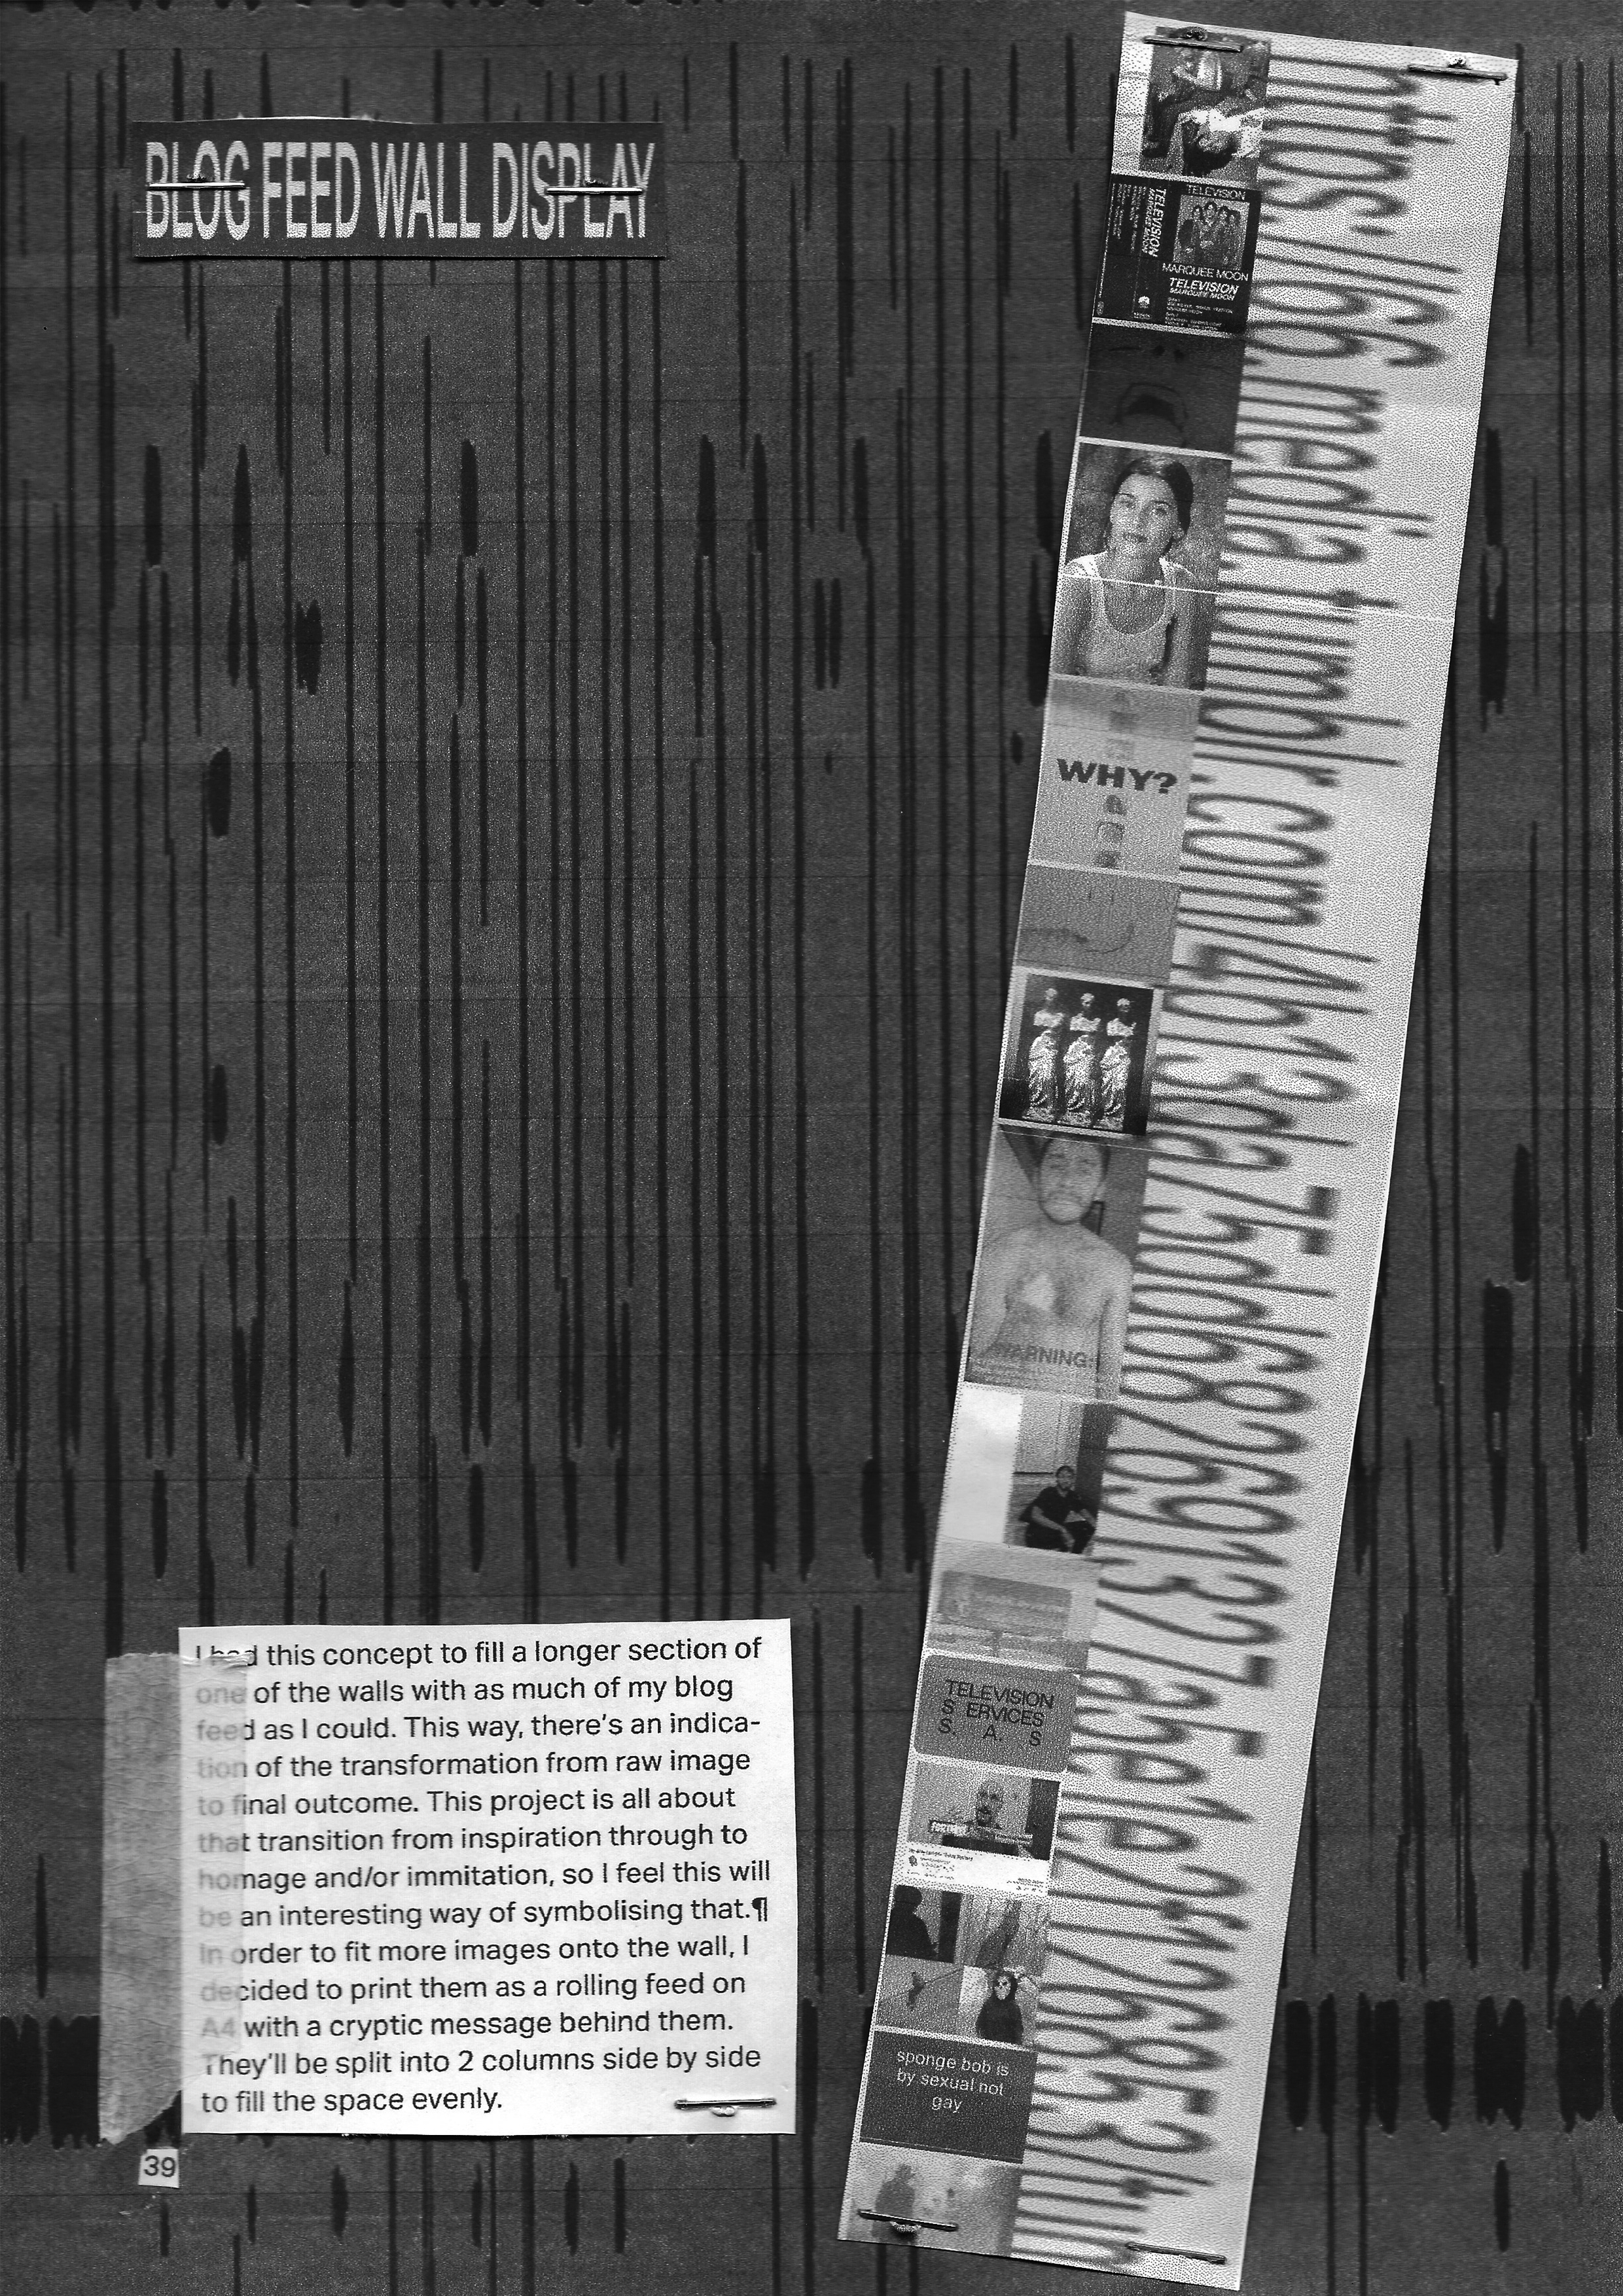 BLOG FEED WALL DISPLAY
TELEVISION
TELEVISION
MARQUEE MOON
MARQUEE MOON
TELEVISION
MARQUEE MOON
WHY?
WARNING:
TELEVISION
S ERVICES
S. A. S
sponge bob is
by sexual not
gay
https://66.media.tumblr.com/4b13da75bb68269137a5a1e21126853/tum
I had this concept to fill a longer section of
one of the walls with as much of my blog
feed as I could. This way, there's an indica-
tion of the transformation from raw image
to final outcome. This project is all about
that transition from inspiration through to
homage and/or immitation, so I feel this will
be an interesting way of symbolising that.¶
In order to fit more images onto the wall, I
decided to print them as a rolling feed on
A4 with a cryptic message behind them.
They'll be split into 2 columns side by side
to fill the space evenly.
39